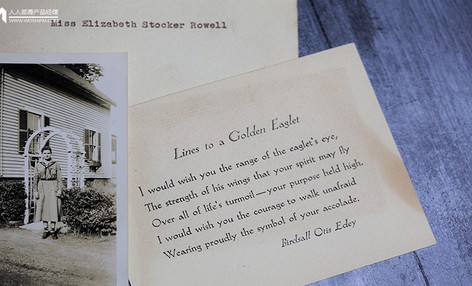 人人都是产品经理
WWW.WOSHIPM.COM
Miss Elizabeth Stocker Rowell
Lines to a Golden Eaglet
I would wish you the range of the eaglet's eye,
The strength of his wings that your spirit may fly
Over all of life's turmoil—your purpose held high.
I would wish you the courage to walk unafraid
Wearing proudly the symbol of your accolade.
Birdsall Otis Edey